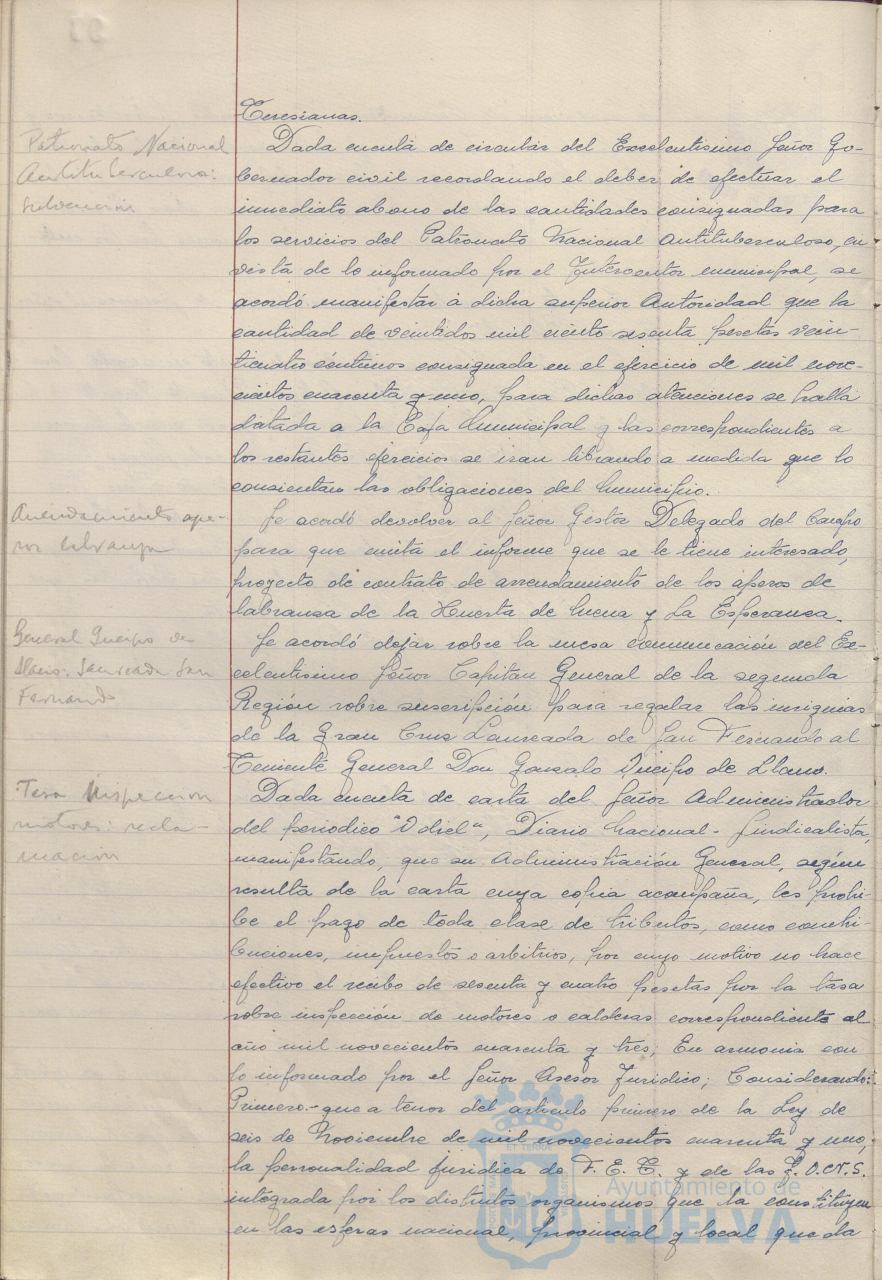 Teresianas.
Patronato Nacional
Antituberculoso:
subvención
Dada cuenta de circular del Excelentísimo Señor Go-
bernador civil recordando el deber de efectuar el
inmediato abono de las cantidades consignadas para
los servicios del Patronato Nacional Antituberculoso, en
vista de lo informado por el Interventor municipal, se
acordó manifestar a dicha superior Autoridad que la
cantidad de veintidos mil ciento sesenta pesetas vein-
ticuatro céntimos consignada en el ejercicio de mil nove-
cientos cuarenta y uno, para dichas atenciones se halla
datada a la Caja Municipal y las correspondientes a
los restantes ejercicios se iran librando a medida que lo
consientan las obligaciones del Municipio.
Arrendamiento ape-
ros labranza
Se acordó devolver al Señor Gestor Delegado del Campo
para que emita el informe que se le tiene interesado,
proyecto de contrato de arrendamiento de los aperos de
labranza de la Huerta de Mena y La Esperanza.
General Queipo de
Llano. Laureada San
Fernando
Se acordó dejar sobre la mesa comunicación del Ex-
celentisimo Señor Capitan General de la segunda
Región sobre suscripción para regalar las insignias
de la Gran Cruz Laureada de San Fernando al
Teniente General Don Gonzalo Queipo de Llano.
Tasa Inspeccion
motores: recla-
macion
Dada cuenta de carta del Señor Administrador
del periodico "Odiel", Diario Nacional-Sindicalista,
manifestando, que su Administración General, según
resulta de la carta cuya copia acompaña, les prohi-
be el pago de toda clase de tributos, como contri-
buciones, impuestos o arbitrios, por cuyo motivo no hace
efectivo el recibo de sesenta y cuatro pesetas por la tasa
sobre inspección de motores o calderas correspondiente al
año mil novecientos cuarenta y tres; En armonia con
lo informado por el Señor Asesor Juridico; Considerando:
Primero.- que a tenor del articulo primero de la Ley de
seis de Noviembre de mil novecientos cuarenta y uno,
la personalidad juridica de F. E. T. y de las J.O.N.S.
integrada por los distintos organismos que la constituyen
en las esferas nacional, provincial y local queda
Ayuntamiento de
HUELVA